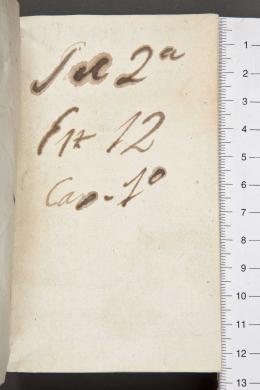 Sal 2a
Est 12
Cax. 1o
1
2
3
4
5
6
7
8
9
10
11
12
13